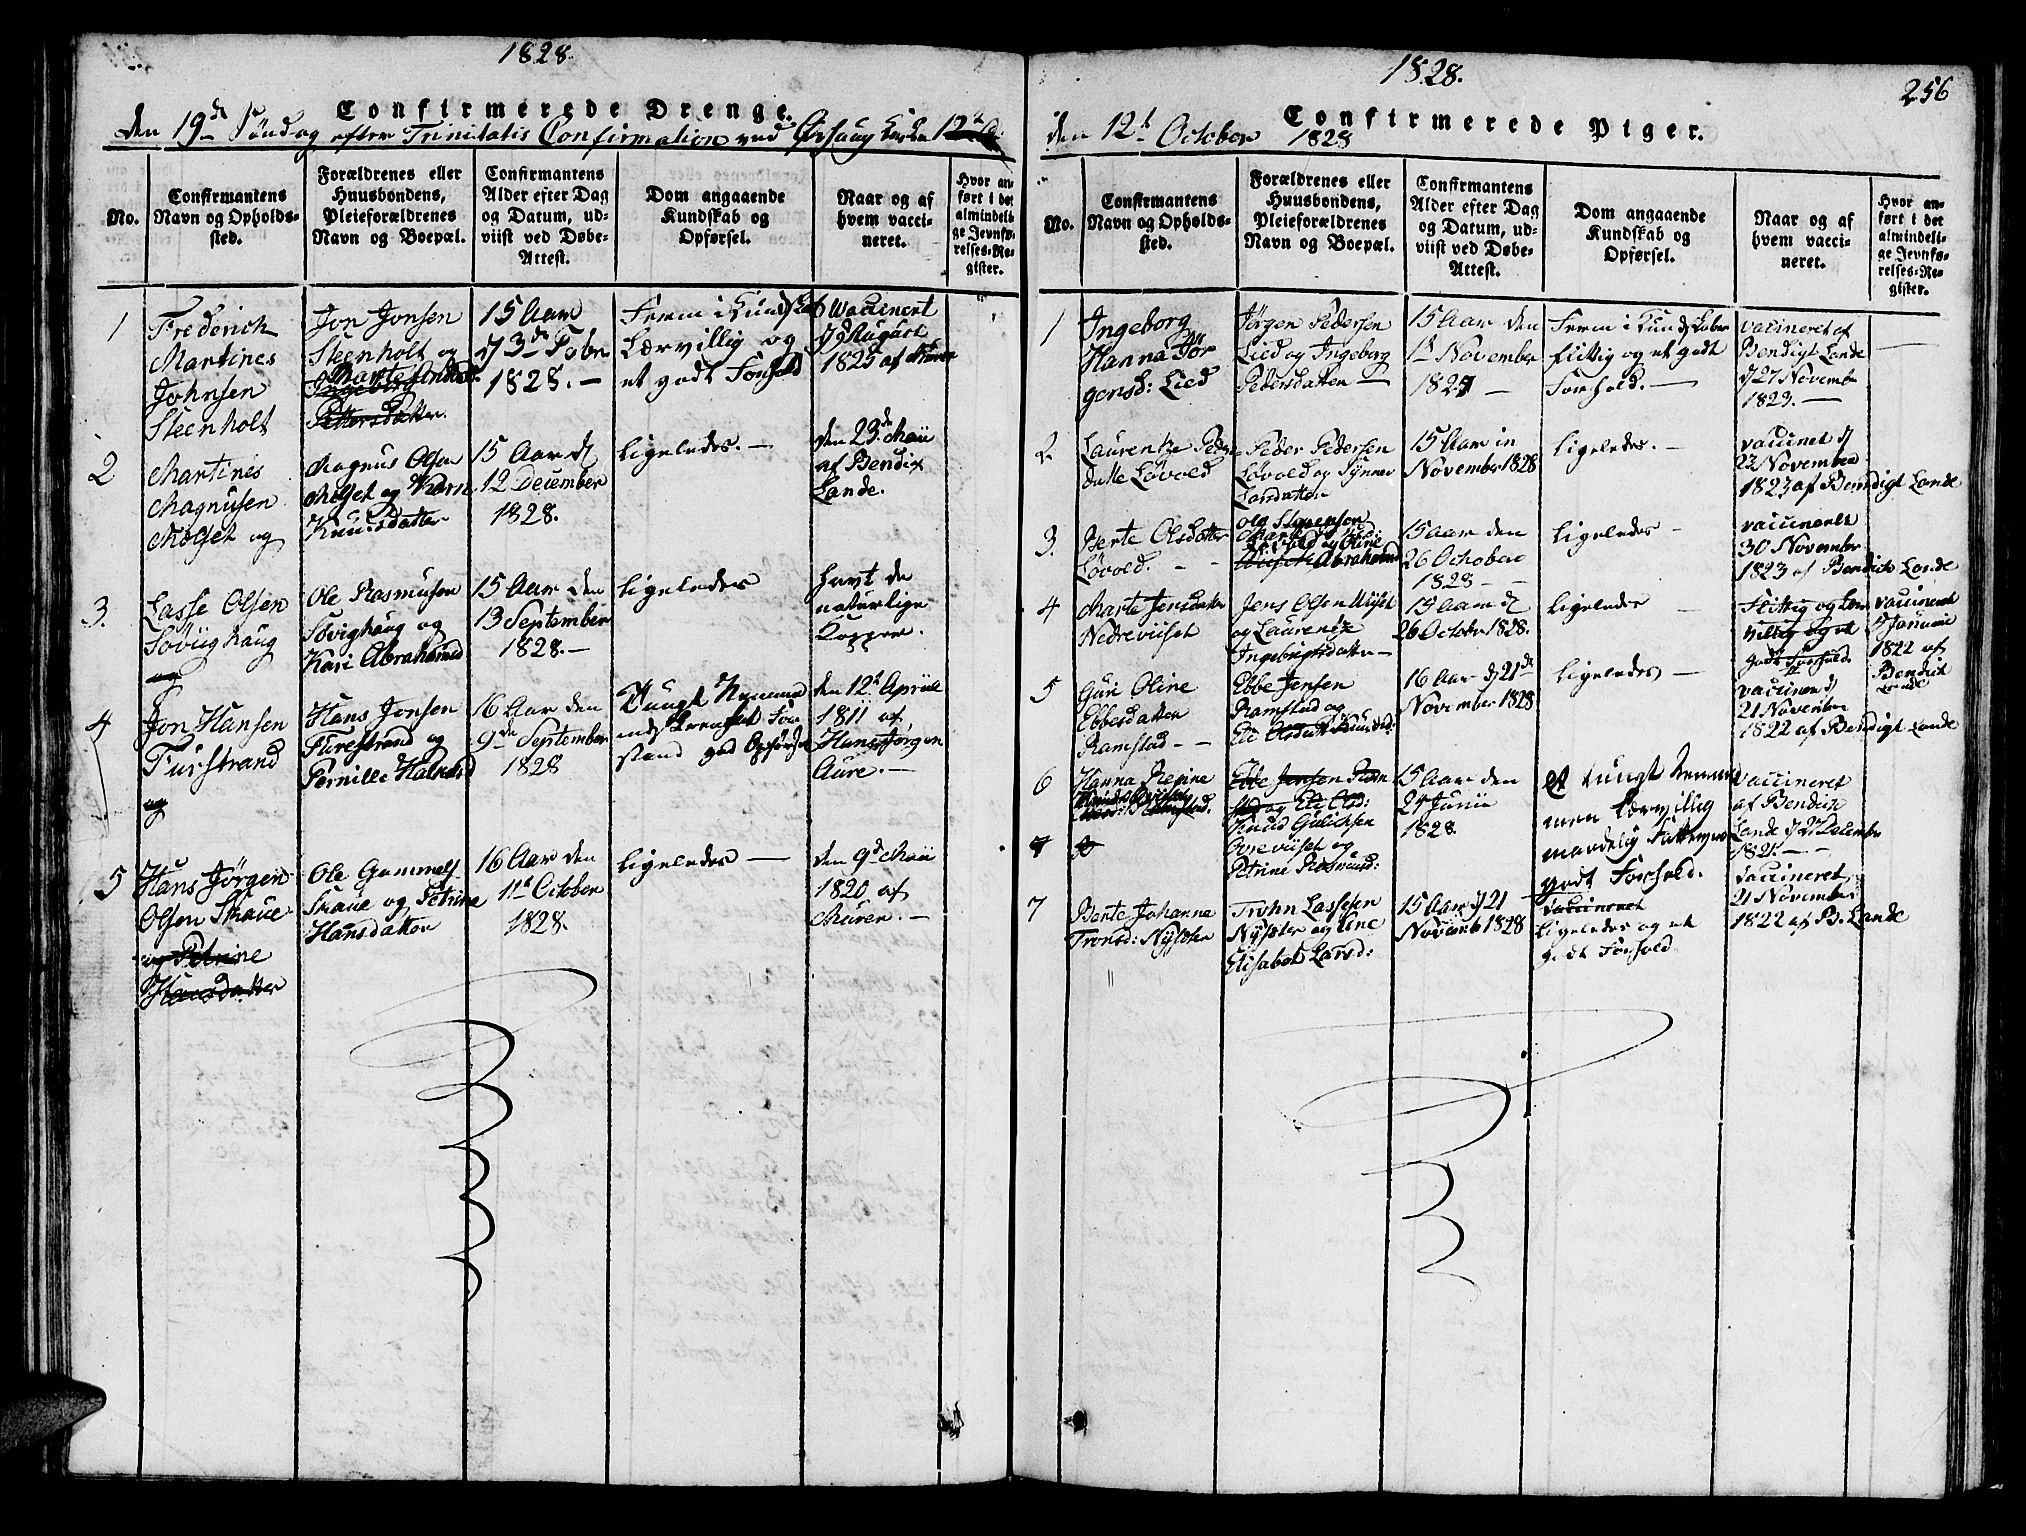 1828.
Confirmerede Drenge.
Den 19de Søndag efter Trinitatis Confirmation ved Ørskaug Kirke
No.
Confirmantens
Navn og Opholds-
sted.
Forældrenes eller
Huusbondens,
Pleieforældrenes
Navn og Boepæl.
Confirmantens
Alder efter Dag
og Datum, ud-
viist ved Døbe-
Attest.
Dom angaaende
Kundskab og
Opførsel.
Naar og af
hvem vacci-
neret.
Hvor an-
ført i det
almindeli-
ge Jevnfø-
relses-Re-
gister.
1
Frederich
Martines
Johnsen
Steenholt
Jon Jonsen
Steenholt og
Ingeborg
Pettersdatter.
15 Aar
d 3de Febr
1828. —
Frem i Kundskab
Lærvillig og
et godt Forhold
Vaccinert
August
1825 af
2
Martines
Magnusen
Mølset og
Magnus Olsen
Mølset og Karn
Knudsdatter
15 Aar d
12 December
1828.
ligeledes. —
den 23de Maii
af Bendix
Lande.
3.
Lasse Olsen
Søviighaug
og
Ole Rasmusen
Søvighaug og
Kari Abrahamsd
15 Aar den
13 September
1828. —
ligeledes
havt de
naturlige
Kopper.
4
Jon Hansen
Furstrand
og
Hans Jonsen
Furestrand og
Pernille Halvorsd
16 Aar den
9de September
1828
Tungt Nemme
indskrenket For
stand god Opførsel
den 12te Apriil
1811 af
Hans Jørgen
Aure. —
5
Hans Jørgen
Olsen Skaue
og Petrine
Hansdatter
Ole Gammels
Skaue og Petrine
Hansdatter
16 Aar den
11te October
1828.
ligeledes —
den 9de Maii
1820 af
Murer. —
1828.
256
Confirmerede Piger.
den 12te October 1828
No.
Confirmantens
Navn og Opholds-
sted.
Forældrenes eller
Huusbondens,
Pleieforældrenes
Navn og Boepæl.
Confirmantens
Alder efter Dag
og Datum, ud-
viist ved Døbe-
Attest.
Dom angaaende
Kundskab og
Opførsel.
Naar og af
hvem vacci-
neret.
Hvor an-
ført i det
almindeli-
ge Jevnfø-
relses-Re-
gister.
1
Ingeborg
Hanna Jør
gensd: Lied
Jørgen Pedersen
Lied og Ingeborg
Pedersdatter —
15 Aar den
1te November
Frem i Kundskaber
flittig og et godt
Forhold. —
vaccineret af
Bendigt Lande
d 27 Novemb
1823. —
2
Laurentze Peders
datte Løvold
Peder Pedersen
Løvold og Synner
Larsdatter
15 Aar in
November 1828
ligeledes. —
vaccinet d
22 November
1823 af Bendigt Lande
3.
Berte Olsdatter
Løvold. - -
Abrahamsd
15 Aar den
26 Octobae
1828 —
ligeledes —
vaccineret
30 November
1823 af Bendich Lande
4
Marte Jensdatter
Nedreviiset
Jens Olsen Wiiset
og Laurentze
Ingebrigtsdatter —
26 October 1828.
ligeledes —
Flittig og Lær
villig og et
godt Forhold.
vaccineret
d Januari
1822 af
Bendix
Lande
5
Guri Oline
Ebbesdatter
Ramstad - -
Ebbe Jensen
Ramstad og
Eli
16 Aar d 21de
November 1828
ligeledes —
vaccinen d
21 November
1822 af Bendigt Lande
6
Hanna Regine
Ebbe Jensen Ram
stad og Eli Olsd:
Knud Gulichsen
Ovreviiset og
Petrine Rasmusd:
15 Aar den
24 Junii
1828.
et tungt Nemme
men Lærvillig
godt Forhold.
vaccineret
af Bendix
Lande d 27 December
1821. - -
7
7
Berte Johanne
Tronsd: Nysæter
Trohn Lassesen
Nysæter og Ane
Elisabet Larsd:
15 Aar d 21
Novemb 1828
vaccineret
ligeledes og et
godt Forhold
vaccineret
21 November
1822 af B. Lande